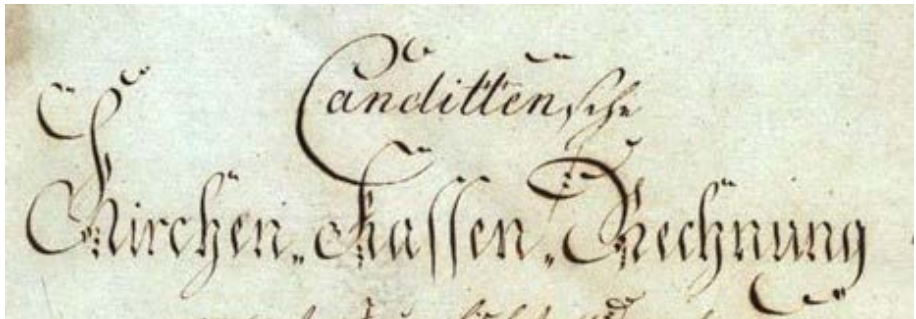 Canditten sche
Kirchen„ Kassen„ Rechnung